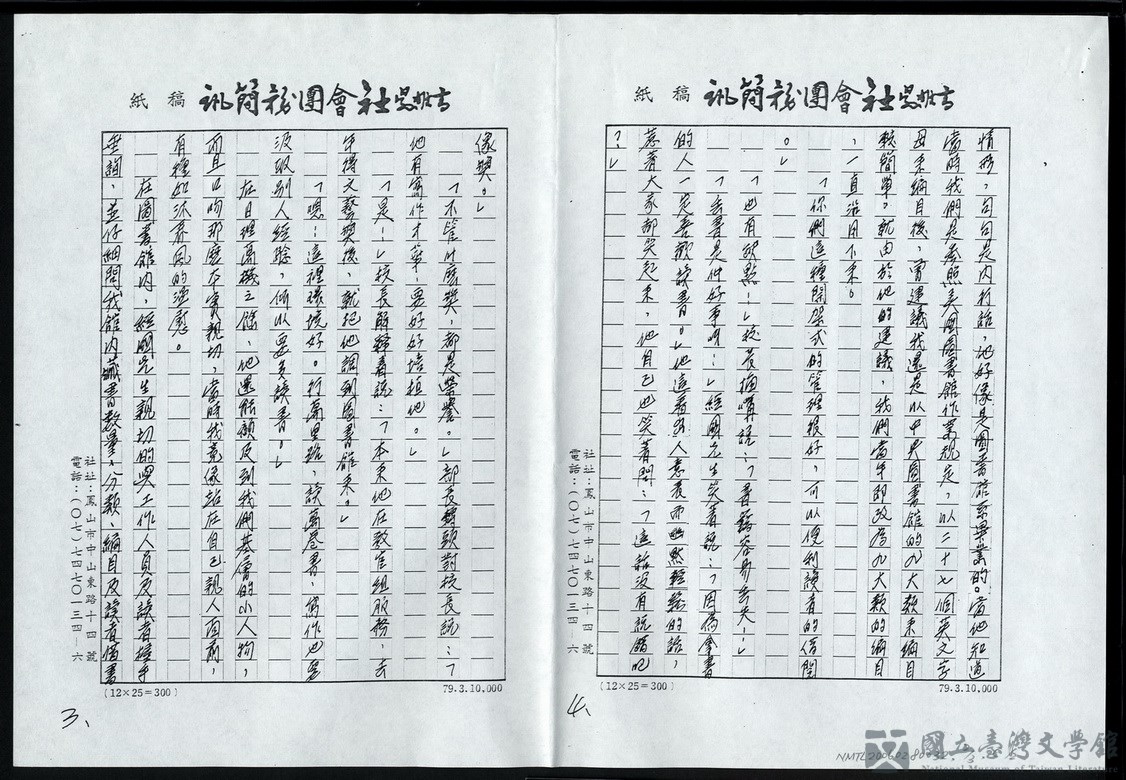 稿紙 訊簡務團會社吳柱吉
像獎。」
「不管什麼獎,都是榮譽。」部長轉頭對校長說:「
他有寫作才華,要好好培植他。」
「是!」校長解釋着說:「本來他在教官組服務,去
年得文藝獎後,就把他調到圖書館來。」
「嗯!這裡環境好。行萬里路,讀萬卷書,寫作也要
汲取別人經驗,所以要多讀書。」
在日理萬機之餘,他還能顧及到我們基層的小人物,
而且口吻那麼 親切,當時我竟像站在自己親人面前,
有種如沐春風的 慰。
在圖書館內,經國先生親切的與工作人員及讀者握手
垂詢,並仔細問我館內藏書數量、分類、編目及讀者借書
社址:鳳山市中山東路十四號
電話:(〇七)七四七〇一三四-六
(12×25=300)
79.3.10,000
3、
稿紙
情形,句句是內行話,他好像是圖書館系畢業的。當他知道
當時我們是參照美國圖書館作業規定,以二十七個英文字
母來編目後,曾建議我還是以中央圖書館的九大類來編目
較簡單。就由於他的建議,我們當年即改為九大類的編目
,一直沿用下來。
「你們這種開架式的管理很好,可以便利讀者的借閱
。」
「也有缺點!」校長插嘴說:「書籍容易丟失!」
「丟書是件好事啊!」經國先生笑着說:「因為拿書
的人一定喜歡讀書。」他這 人意表而幽默輕鬆的話,
惹著大家都笑起來,他自己也笑着問:「這話沒有說錯吧
?」
社址:鳳山市中山東路十四號
電話:(〇七)七四七〇一三四-六
(12×25=300)
79.3.10,000
4、
國立臺灣文學館
National Museum of Taiwan Literature